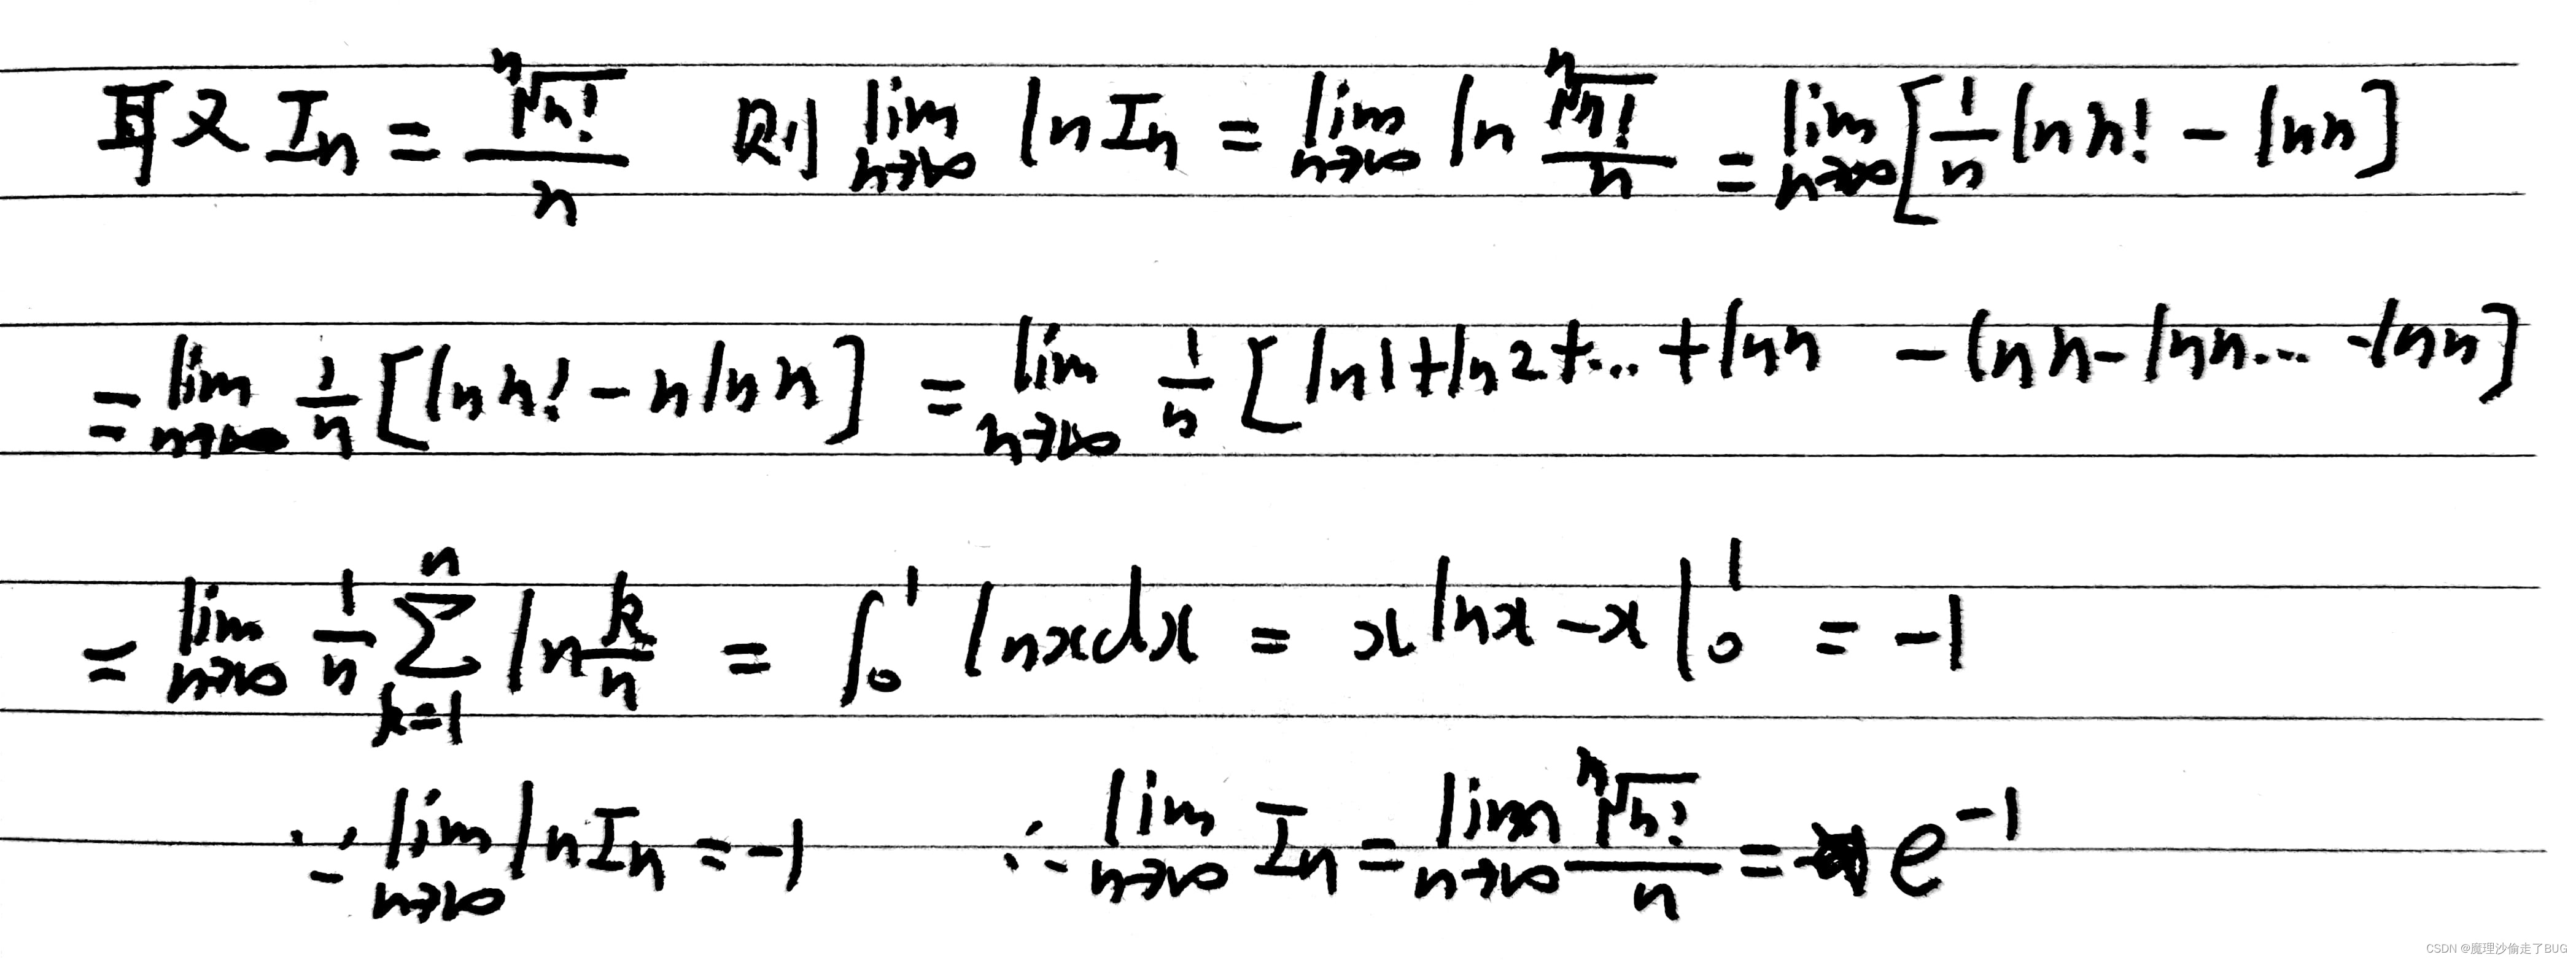 取 Iₙ = ⁿ√n! / n 则 lim n→∞ ln Iₙ = lim n→∞ ln ⁿ√n! / n = lim n→∞ [1/n ln n! − ln n]
= lim n→∞ 1/n [ln n! − n ln n] = lim n→∞ 1/n [ln1+ln2+…+ln n − ln n − ln n… −ln n]
= lim n→∞ 1/n ∑ k=1 n ln k/n = ∫₀¹ ln x dx = x ln x − x |₀¹ = −1
∵ lim n→∞ ln Iₙ = −1 ∴ lim n→∞ Iₙ = lim n→∞ ⁿ√n! / n = e⁻¹
CSDN @魔理沙偷走了BUG